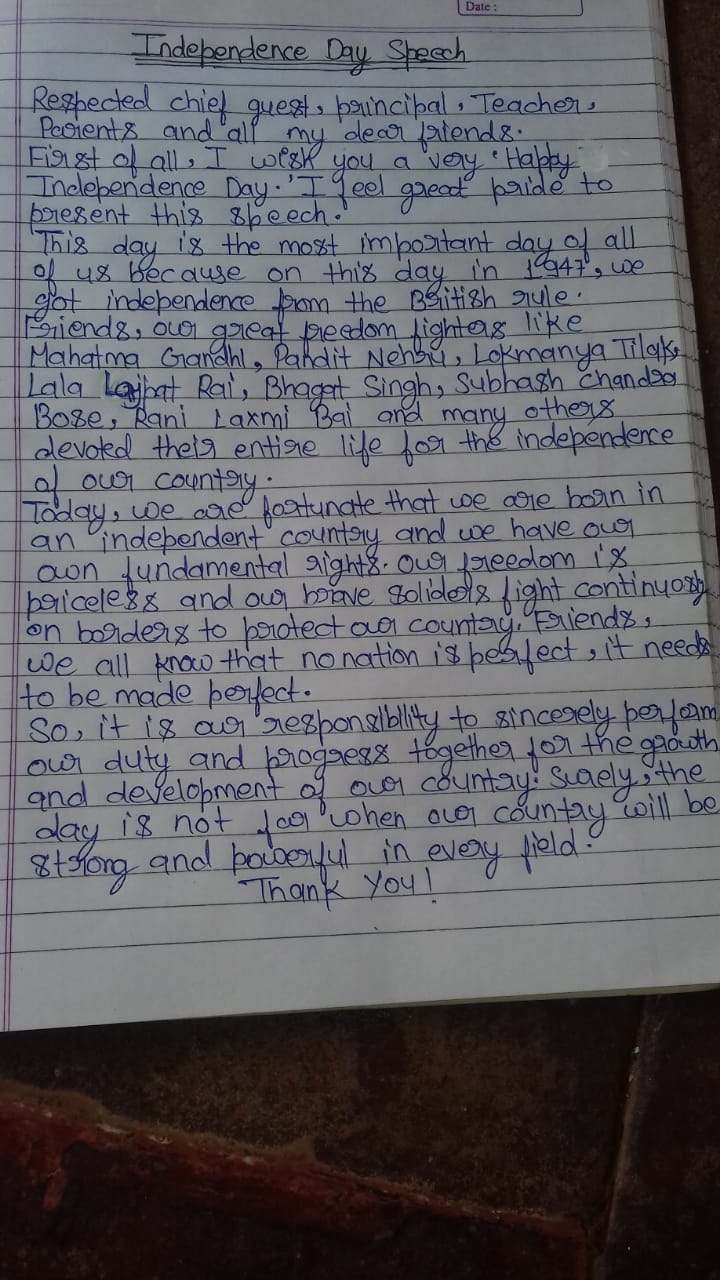 Date:
Independence Day Speech
Respected chief guest, principal, Teacher,
Parents and all my dear friends.
First of all, I wish you a very 'Happy
Independence Day.' I feel great pride to
present this speech.
This day is the most important day of all
of us because on this day in 1947, we
got independence from the British rule.
Friends, our great freedom fighters like
Mahatma Gandhi, Pandit Nehru, Lokmanya Tilak,
Lala Lajpat Rai, Bhagat Singh, Subhash Chandra
Bose, Rani Laxmi Bai and many others
devoted their entire life for the independence
of our country.
Today, we are fortunate that we are born in
an independent country and we have our
own fundamental rights. Our freedom is
priceless and our brave soliders fight continuosly
on borders to protect our country. Friends,
we all know that no nation is perfect, it needs
to be made perfect.
So, it is our responsibility to sincerely perform
our duty and progress together for the growth
and development of our country. Surely, the
day is not far when our country will be
strong and powerful in every field.
Thank You!